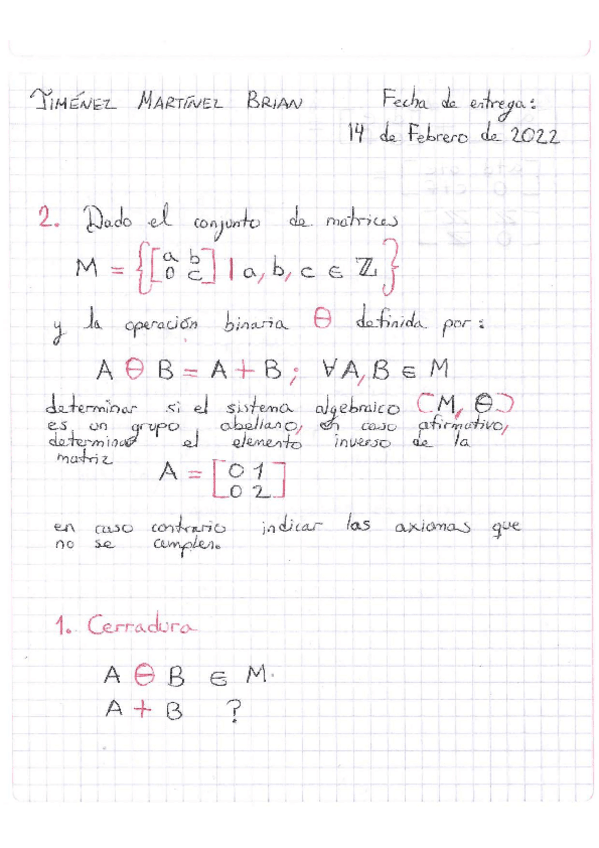 JIMÉNEZ MARTÍNEZ BRIAN Fecha de entrega:
14 de Febrero de 2022
2. Dado el conjunto de matrices
M = {[a b
0 c] | a, b, c ∈ ℤ}
y la operación binaria ⊖ definida por:
A ⊖ B = A + B; ∀A, B ∈ M
determinar si el sistema algebraico (M, ⊖)
es un grupo abeliano, en caso afirmativo,
determinar el elemento inverso de la
matriz
A = [0 1
0 2]
en caso contrario indicar las axiomas que
no se cumplen.
1. Cerradura
A ⊖ B ∈ M.
A + B ?